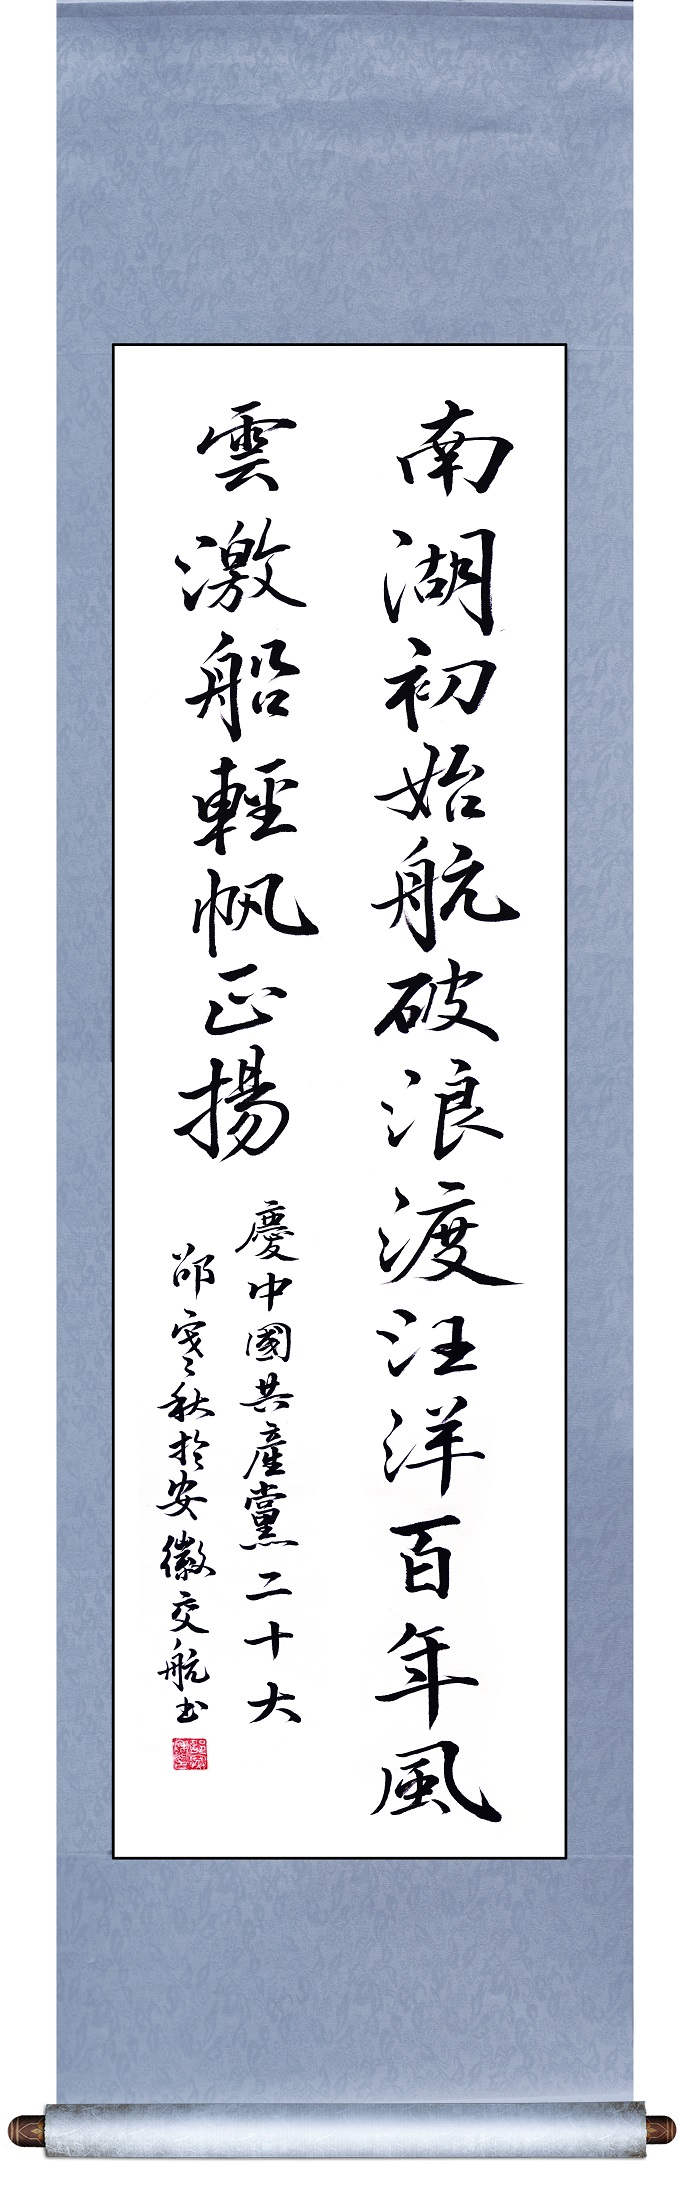 南湖初始航破浪渡汪洋百年風
雲激船輕帆正揚
慶中國共產黨二十大
邵寒秋於安徽交航书